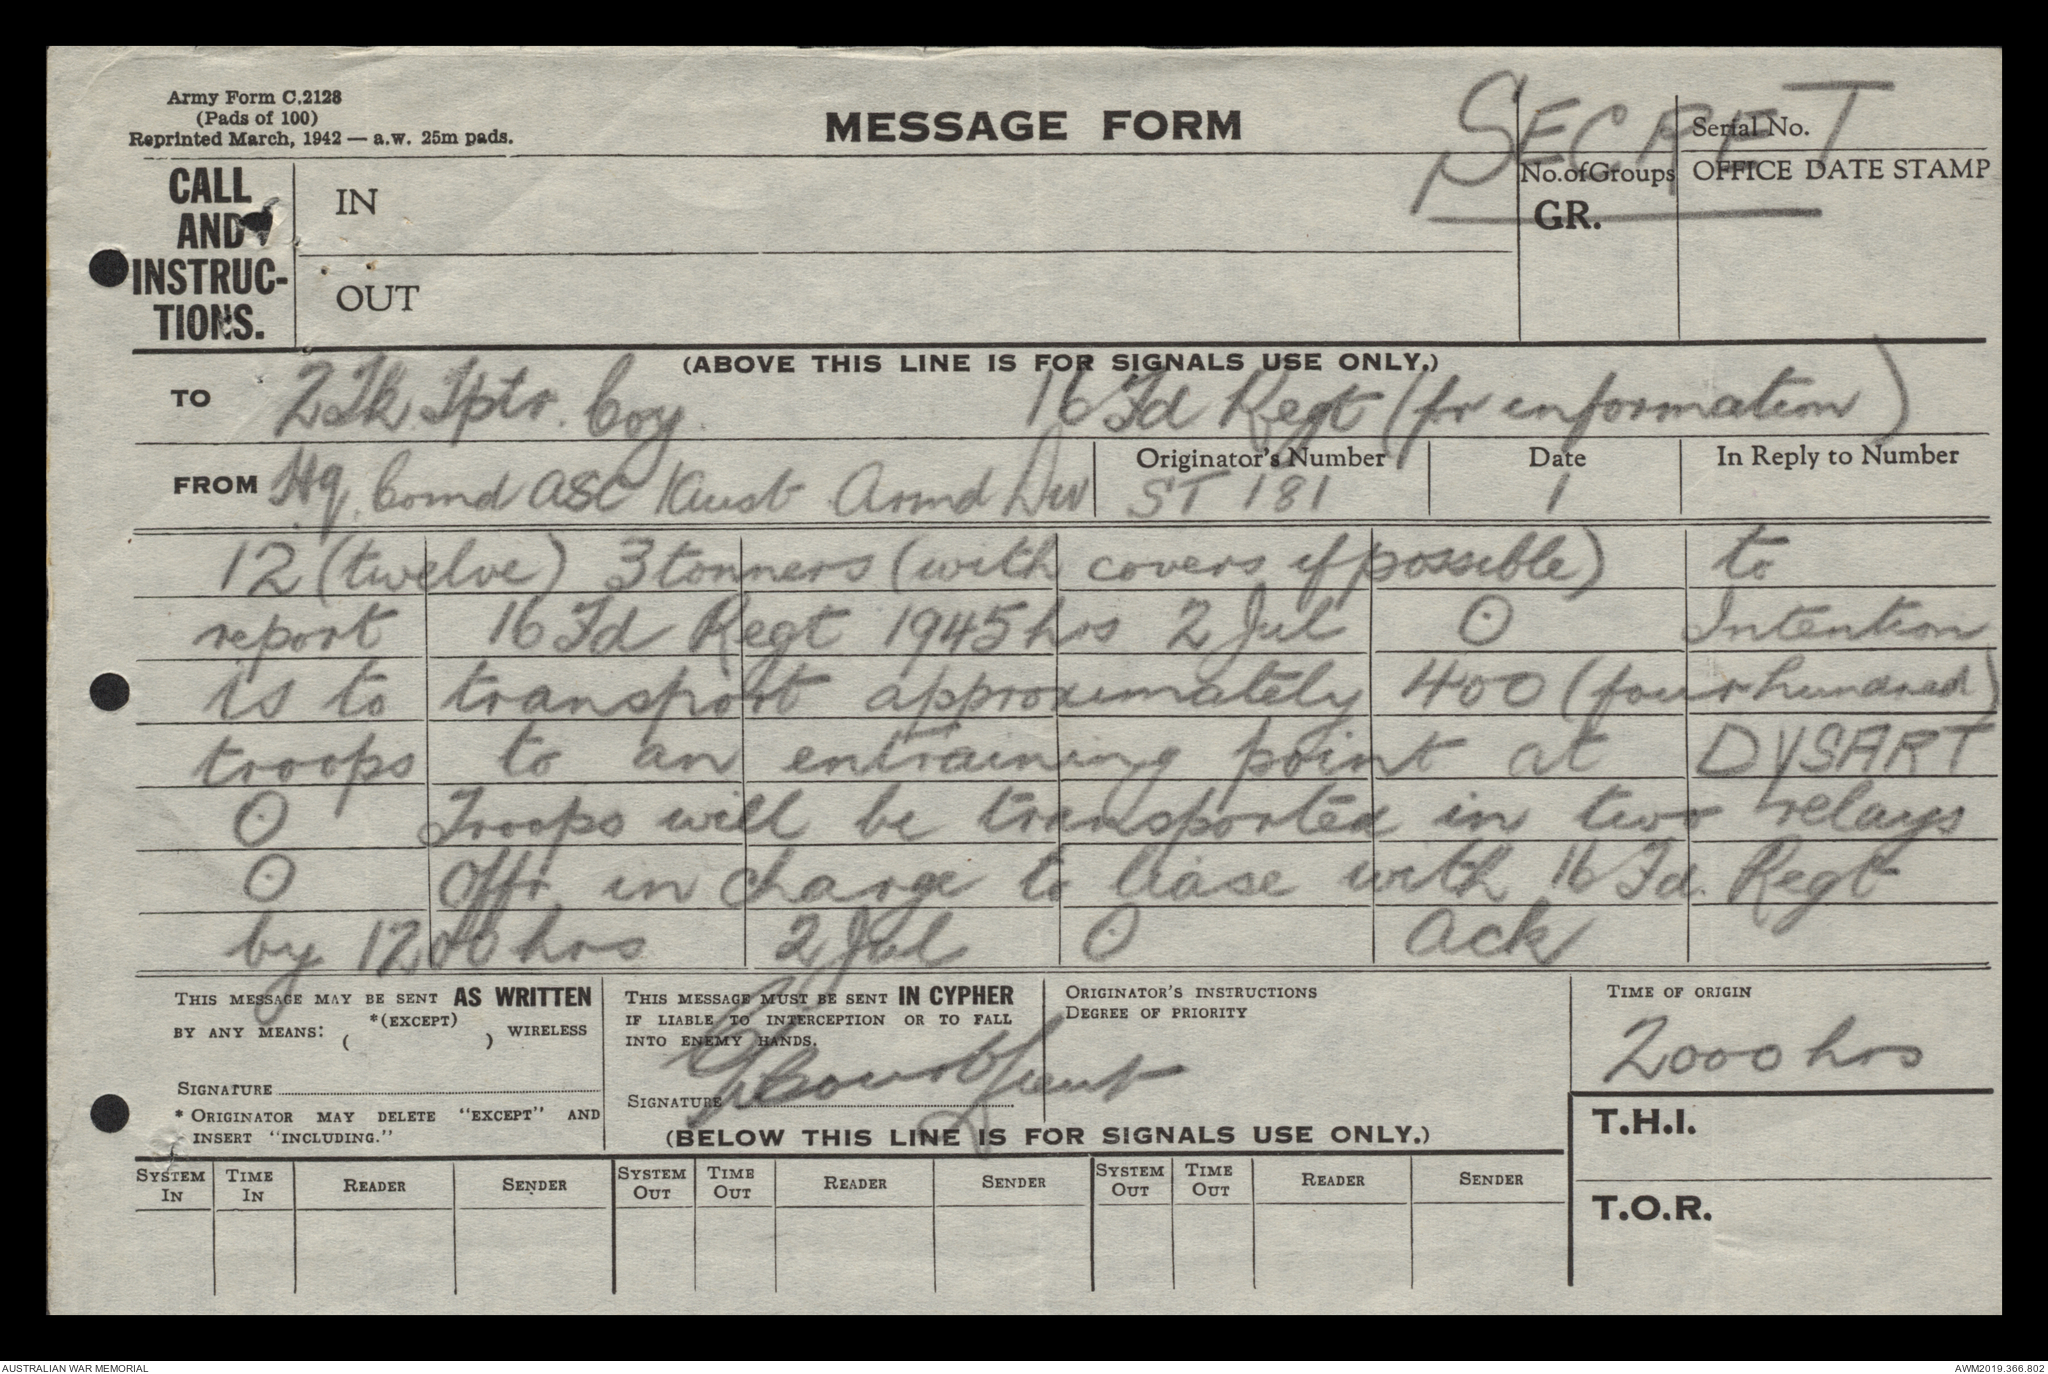 Army Form C.2128
(Pads of 100)
Reprinted March, 1942 — a.w. 25m pads.
MESSAGE FORM
SECRET
Serial No.
CALL
AND
INSTRUC-
TIONS.
IN
OUT
No. of Groups
GR.
OFFICE DATE STAMP
(ABOVE THIS LINE IS FOR SIGNALS USE ONLY.)
TO 2 Tk Tptr. Coy. 16 Fd Regt (for information)
FROM Hq. Comd ASC 1 Aust Armd Div
Originator's Number ST 181
Date 1
In Reply to Number
12 (twelve) 3 tonners (with covers if possible) to
report 16 Fd Regt 1945 hrs 2 Jul O Intention
is to transport approximately 400 (four hundred)
troops to an entraining point at DYSART
O Troops will be transported in two relays
O Offr in charge to liase with 16 Fd. Regt
by 1200 hrs 2 Jul O ack
THIS MESSAGE MAY BE SENT AS WRITTEN
BY ANY MEANS: *(EXCEPT) ( ) WIRELESS
SIGNATURE
* ORIGINATOR MAY DELETE "EXCEPT" AND
INSERT "INCLUDING."
THIS MESSAGE MUST BE SENT IN CYPHER
IF LIABLE TO INTERCEPTION OR TO FALL
INTO ENEMY HANDS.
SIGNATURE
ORIGINATOR'S INSTRUCTIONS
DEGREE OF PRIORITY
TIME OF ORIGIN
2000 hrs
T.H.I.
T.O.R.
(BELOW THIS LINE IS FOR SIGNALS USE ONLY.)
SYSTEM IN TIME IN READER SENDER SYSTEM OUT TIME OUT READER SENDER SYSTEM OUT TIME OUT READER SENDER
AUSTRALIAN WAR MEMORIAL
AWM2019.366.802